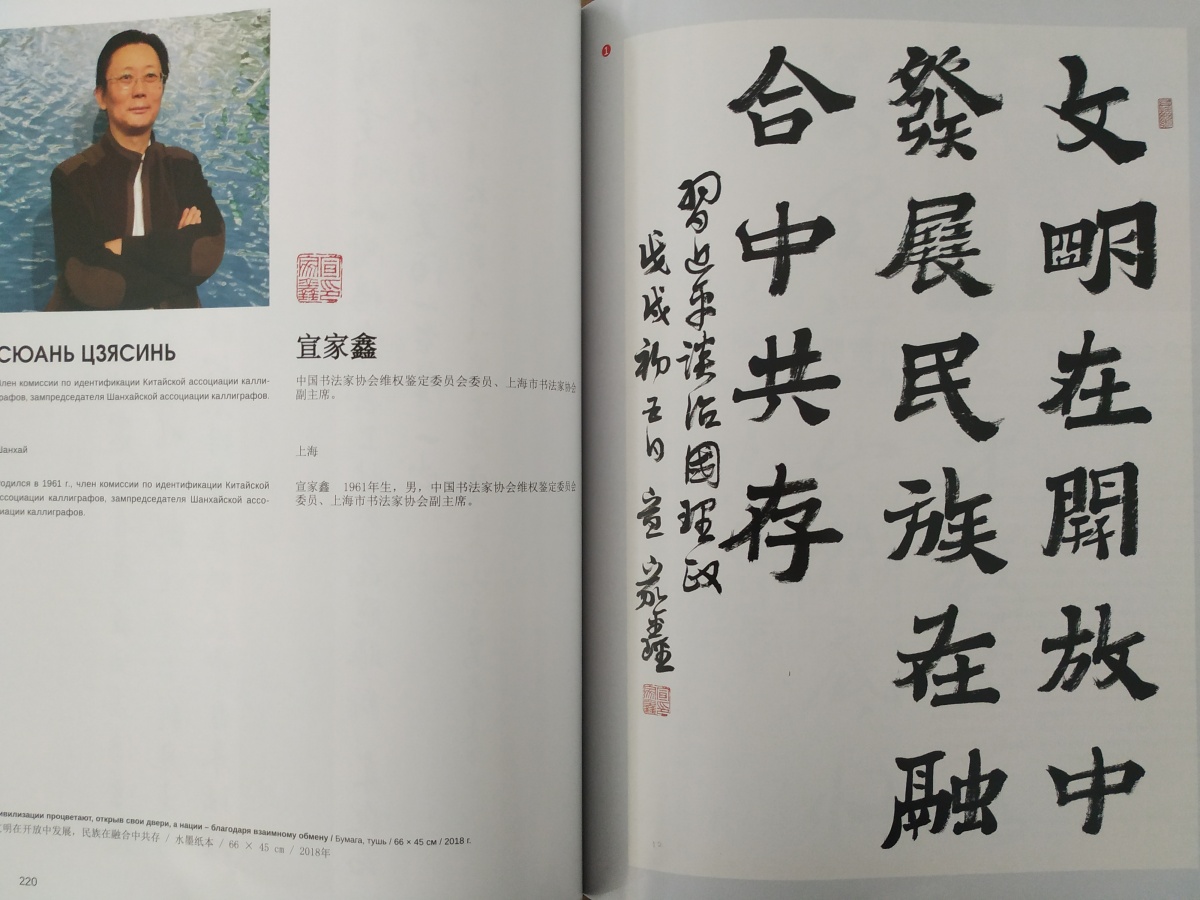 СЮАНЬ ЦЗЯСИНЬ
член комиссии по идентификации Китайской ассоциации калли-
графов, зампредседателя Шанхайской ассоциации каллиграфов.
Шанхай
родился в 1961 г., член комиссии по идентификации Китайской
ассоциации каллиграфов, зампредседателя Шанхайской ассо-
циации каллиграфов.
宣家鑫
中国书法家协会维权鉴定委员会委员、上海市书法家协会
副主席。
上海
宣家鑫 1961年生，男，中国书法家协会维权鉴定委员会
委员、上海市书法家协会副主席。
цивилизации процветают, открыв свои двери, а нации – благодаря взаимному обмену / Бумага, тушь / 66 × 45 см / 2018 г.
文明在开放中发展，民族在融合中共存 / 水墨纸本 / 66 × 45 cm / 2018年
220
1
文明在開放中
發展民族在融
合中共存
習近平談治國理政
戊戌初五日宣家鑫